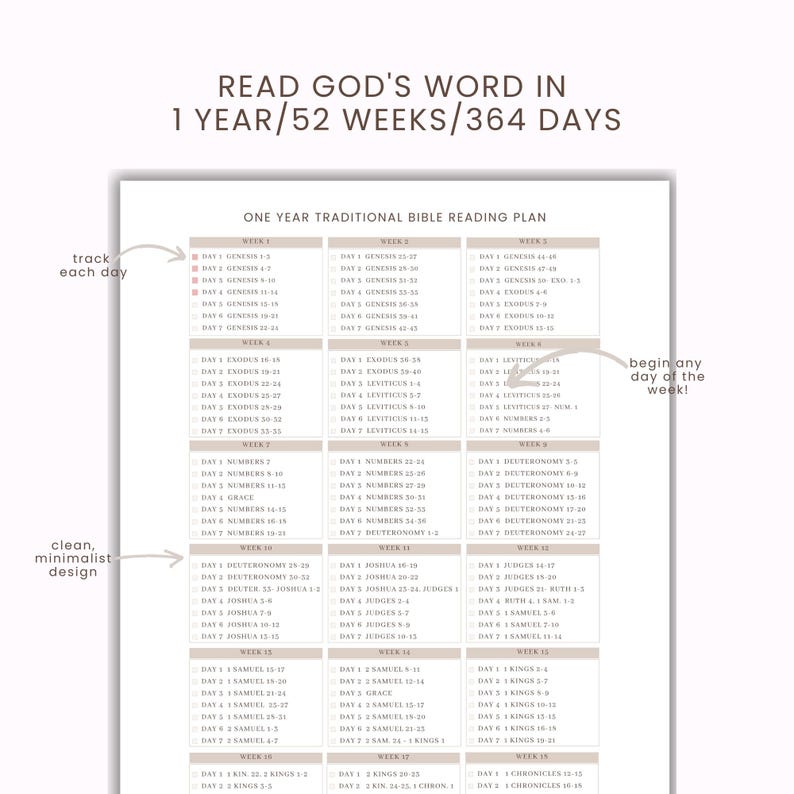 READ GOD'S WORD IN
1 YEAR/52 WEEKS/364 DAYS
ONE YEAR TRADITIONAL BIBLE READING PLAN
track
each day
WEEK 1
DAY 1 GENESIS 1-3
DAY 2 GENESIS 4-7
DAY 3 GENESIS 8-10
DAY 4 GENESIS 11-14
DAY 5 GENESIS 15-18
DAY 6 GENESIS 19-21
DAY 7 GENESIS 22-24
WEEK 2
DAY 1 GENESIS 25-27
DAY 2 GENESIS 28-30
DAY 3 GENESIS 31-32
DAY 4 GENESIS 33-35
DAY 5 GENESIS 36-38
DAY 6 GENESIS 39-41
DAY 7 GENESIS 42-43
WEEK 3
DAY 1 GENESIS 44-46
DAY 2 GENESIS 47-49
DAY 3 GENESIS 50- EXO. 1-3
DAY 4 EXODUS 4-6
DAY 5 EXODUS 7-9
DAY 6 EXODUS 10-12
DAY 7 EXODUS 13-15
WEEK 4
DAY 1 EXODUS 16-18
DAY 2 EXODUS 19-21
DAY 3 EXODUS 22-24
DAY 4 EXODUS 25-27
DAY 5 EXODUS 28-29
DAY 6 EXODUS 30-32
DAY 7 EXODUS 33-35
WEEK 5
DAY 1 EXODUS 36-38
DAY 2 EXODUS 39-40
DAY 3 LEVITICUS 1-4
DAY 4 LEVITICUS 5-7
DAY 5 LEVITICUS 8-10
DAY 6 LEVITICUS 11-13
DAY 7 LEVITICUS 14-15
WEEK 6
DAY 1 LEVITICUS
DAY 2 LEVITICUS 19-21
DAY 3 22-24
DAY 4 LEVITICUS 25-26
DAY 5 LEVITICUS 27- NUM. 1
DAY 6 NUMBERS 2-3
DAY 7 NUMBERS 4-6
begin any
day of the
week!
WEEK 7
DAY 1 NUMBERS 7
DAY 2 NUMBERS 8-10
DAY 3 NUMBERS 11-13
DAY 4 GRACE
DAY 5 NUMBERS 14-15
DAY 6 NUMBERS 16-18
DAY 7 NUMBERS 19-21
WEEK 8
DAY 1 NUMBERS 22-24
DAY 2 NUMBERS 25-26
DAY 3 NUMBERS 27-29
DAY 4 NUMBERS 30-31
DAY 5 NUMBERS 32-33
DAY 6 NUMBERS 34-36
DAY 7 DEUTERONOMY 1-2
WEEK 9
DAY 1 DEUTERONOMY 3-5
DAY 2 DEUTERONOMY 6-9
DAY 3 DEUTERONOMY 10-12
DAY 4 DEUTERONOMY 13-16
DAY 5 DEUTERONOMY 17-20
DAY 6 DEUTERONOMY 21-23
DAY 7 DEUTERONOMY 24-27
clean,
minimalist
design
WEEK 10
DAY 1 DEUTERONOMY 28-29
DAY 2 DEUTERONOMY 30-32
DAY 3 DEUTER. 33- JOSHUA 1-2
DAY 4 JOSHUA 3-6
DAY 5 JOSHUA 7-9
DAY 6 JOSHUA 10-12
DAY 7 JOSHUA 13-15
WEEK 11
DAY 1 JOSHUA 16-19
DAY 2 JOSHUA 20-22
DAY 3 JOSHUA 23-24, JUDGES 1
DAY 4 JUDGES 2-4
DAY 5 JUDGES 5-7
DAY 6 JUDGES 8-9
DAY 7 JUDGES 10-13
WEEK 12
DAY 1 JUDGES 14-17
DAY 2 JUDGES 18-20
DAY 3 JUDGES 21- RUTH 1-3
DAY 4 RUTH 4, 1 SAM. 1-2
DAY 5 1 SAMUEL 3-6
DAY 6 1 SAMUEL 7-10
DAY 7 1 SAMUEL 11-14
WEEK 13
DAY 1 1 SAMUEL 15-17
DAY 2 1 SAMUEL 18-20
DAY 3 1 SAMUEL 21-24
DAY 4 1 SAMUEL 25-27
DAY 5 1 SAMUEL 28-31
DAY 6 2 SAMUEL 1-3
DAY 7 2 SAMUEL 4-7
WEEK 14
DAY 1 2 SAMUEL 8-11
DAY 2 2 SAMUEL 12-14
DAY 3 GRACE
DAY 4 2 SAMUEL 15-17
DAY 5 2 SAMUEL 18-20
DAY 6 2 SAMUEL 21-23
DAY 7 2 SAM. 24 - 1 KINGS 1
WEEK 15
DAY 1 1 KINGS 2-4
DAY 2 1 KINGS 5-7
DAY 3 1 KINGS 8-9
DAY 4 1 KINGS 10-12
DAY 5 1 KINGS 13-15
DAY 6 1 KINGS 16-18
DAY 7 1 KINGS 19-21
WEEK 16
DAY 1 1 KIN. 22, 2 KINGS 1-2
DAY 2 2 KINGS 3-5
WEEK 17
DAY 1 2 KINGS 20-23
DAY 2 2 KIN. 24-25, 1 CHRON. 1
WEEK 18
DAY 1 1 CHRONICLES 12-15
DAY 2 1 CHRONICLES 16-18